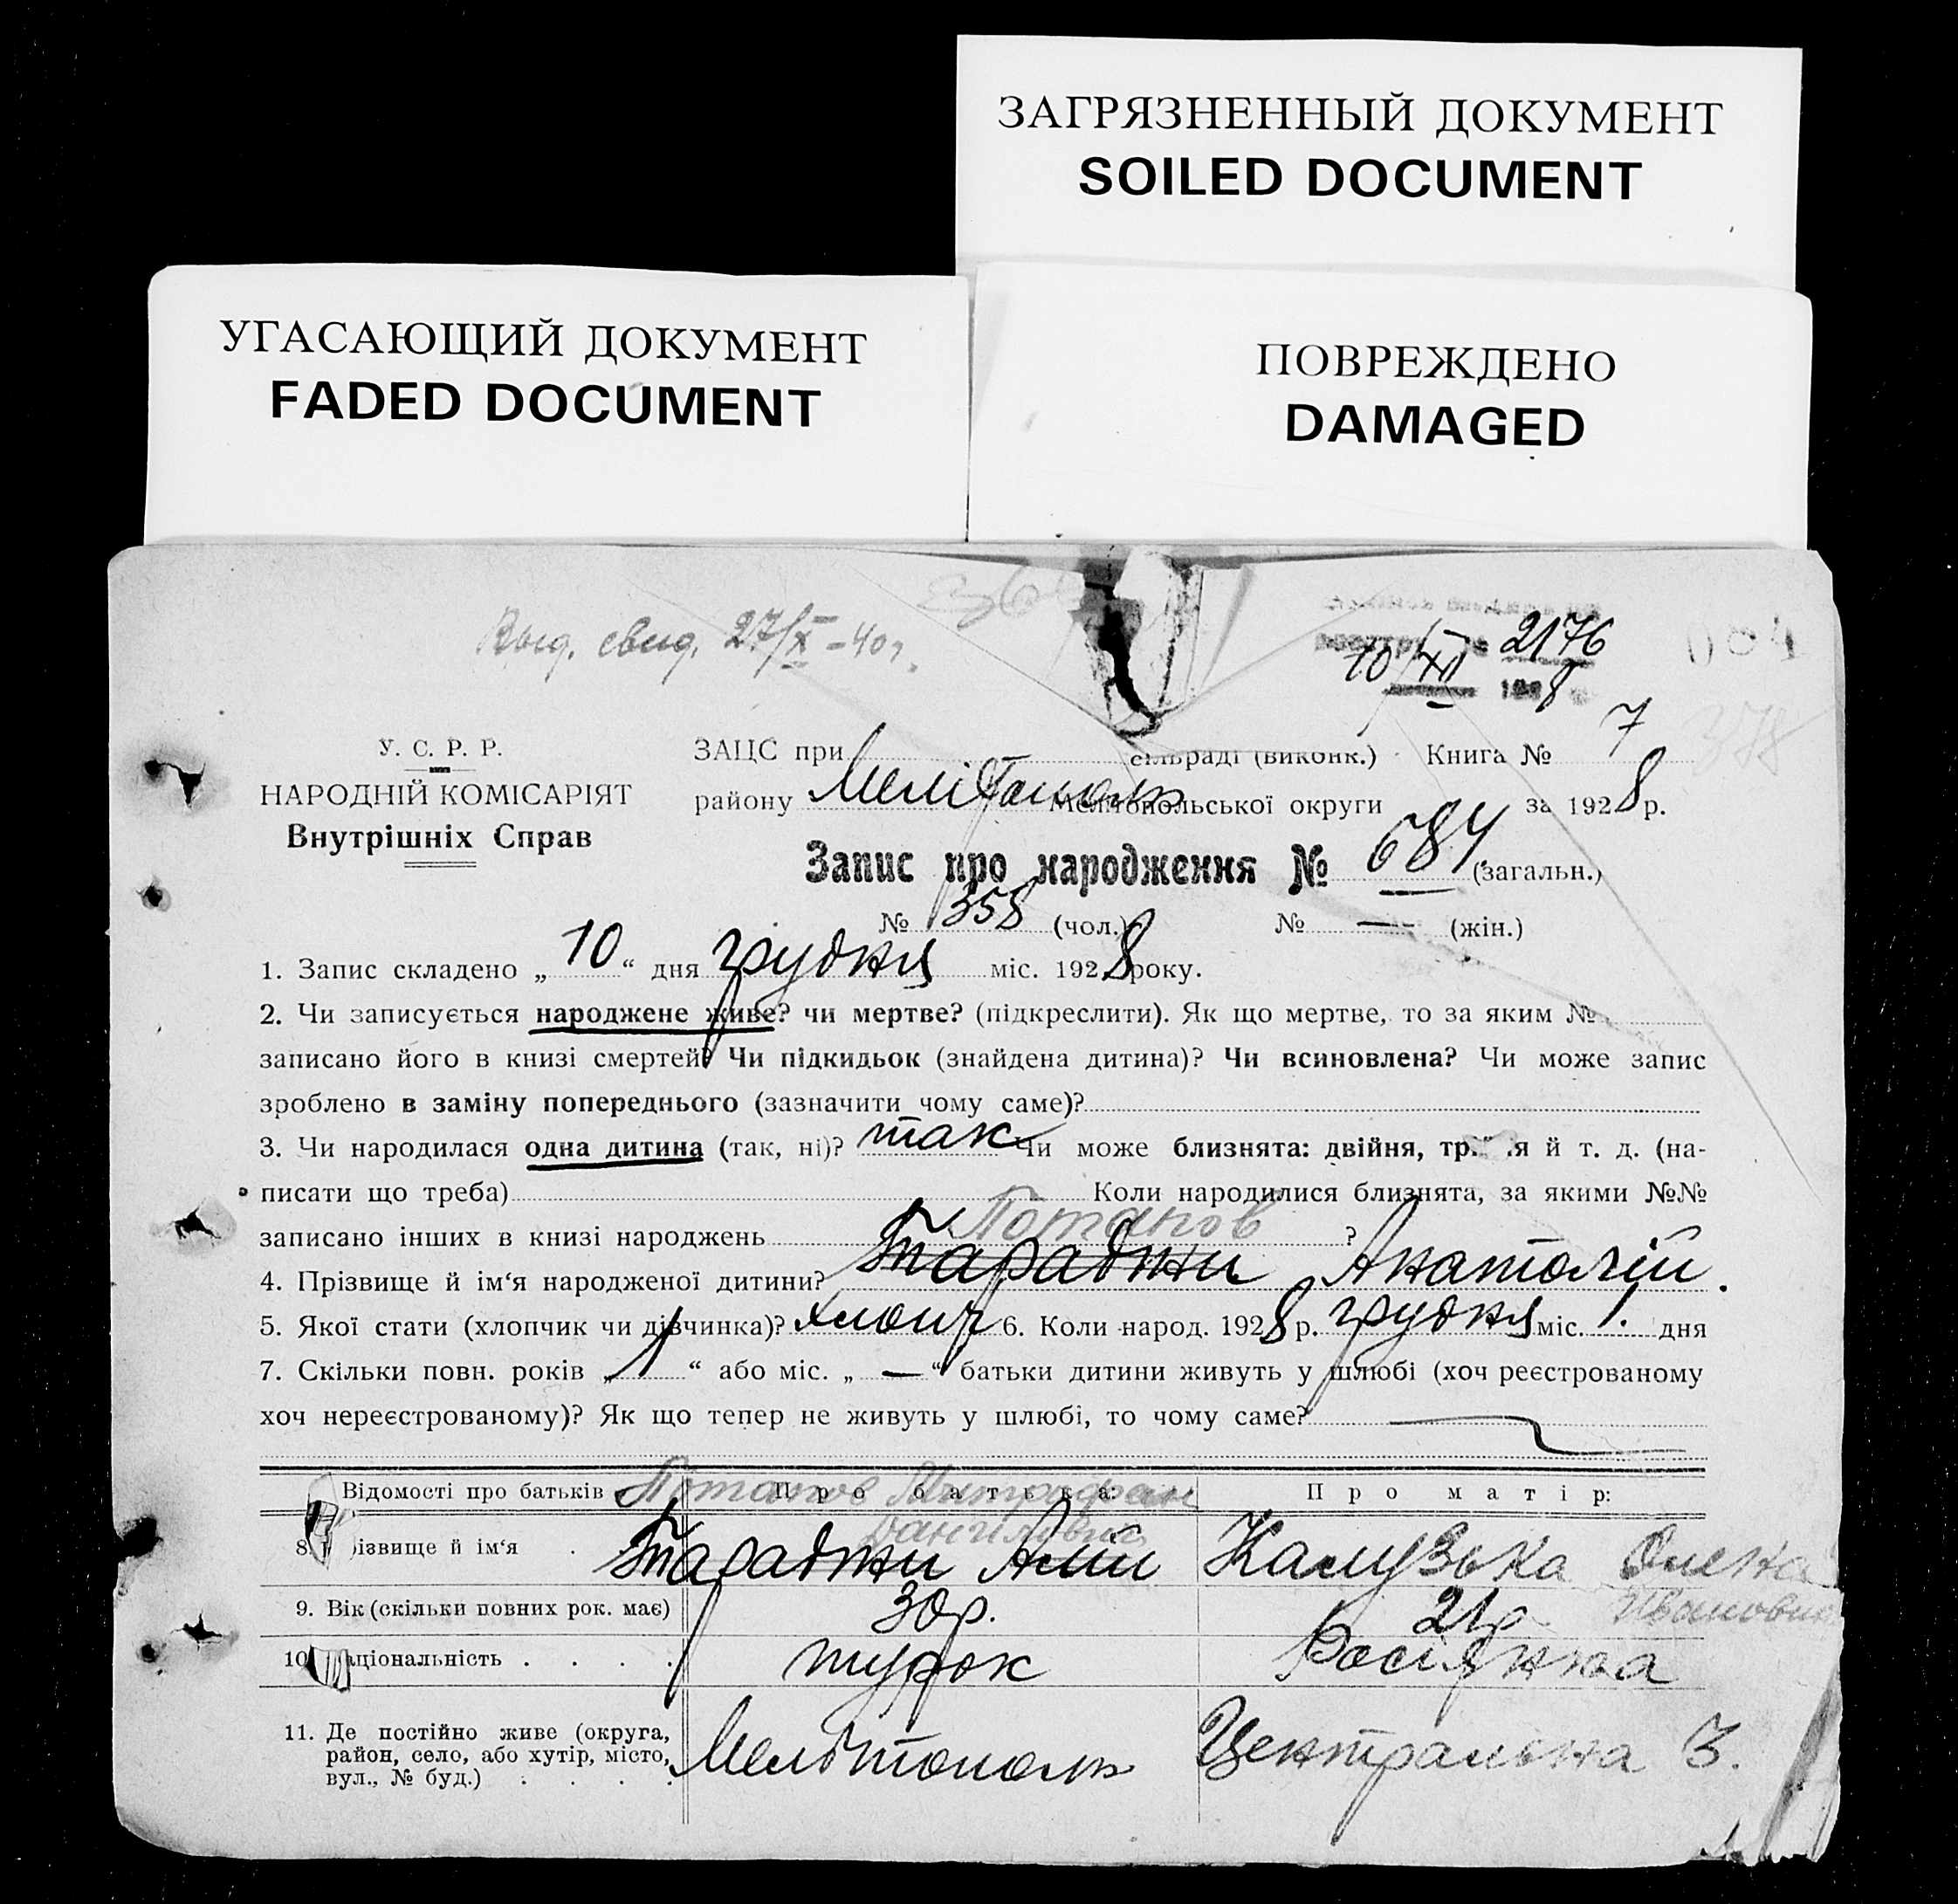 ЗАГРЯЗНЕННЫЙ ДОКУМЕНТ
SOILED DOCUMENT
УГАСАЮЩИЙ ДОКУМЕНТ
FADED DOCUMENT
ПОВРЕЖДЕНО
DAMAGED
Выд. свид. 27/X-40г.
2176
10/XII 1928
У. С. Р. Р.
НАРОДНІЙ КОМІСАРІЯТ
Внутрішніх Справ
ЗАЦС при сільраді (виконк.) Книга № 7
378
району Мелітополь Мелітопольської округи за 1928 р.
Запис про народження № 684 (загальн.)
№ 358 (чол.) № — (жін.)
1. Запис складено „10“ дня грудня міс. 1928 року.
2. Чи записується народжене живе? чи мертве? (підкреслити). Як що мертве, то за яким №
записано його в книзі смертей? Чи підкидьок (знайдена дитина)? Чи всиновлена? Чи може запис
зроблено в заміну попереднього (зазначити чому саме)?
3. Чи народилася одна дитина (так, ні)? так Чи може близнята: двійня, тр я й т. д. (на-
писати що треба) Коли народилися близнята, за якими №№
записано інших в книзі народжень Потапов ?
4. Прізвище й ім‘я народженої дитини? Тараджи Анатолій.
5. Якої стати (хлопчик чи дівчинка)? хлопч 6. Коли народ. 1928 р. грудня міс. 1. дня
7. Скільки повн. років „1“ або міс. „—“ батьки дитини живуть у шлюбі (хоч реєстрованому
хоч нереєстрованому)? Як що тепер не живуть у шлюбі, то чому саме?
Відомості про батьків Про батька: Про матір:
Потапов Митрофан
Данилович
8. різвище й ім‘я Тараджи Алій Калузька Олена
Ивановна
9. Вік (скільки повних рок. має) 30р. 21р.
10 аціональність турок Росіянка
11. Де постійно живе (округа,
район, село, або хутір, місто,
вул., № буд.) Мелітополь Центральна 3.